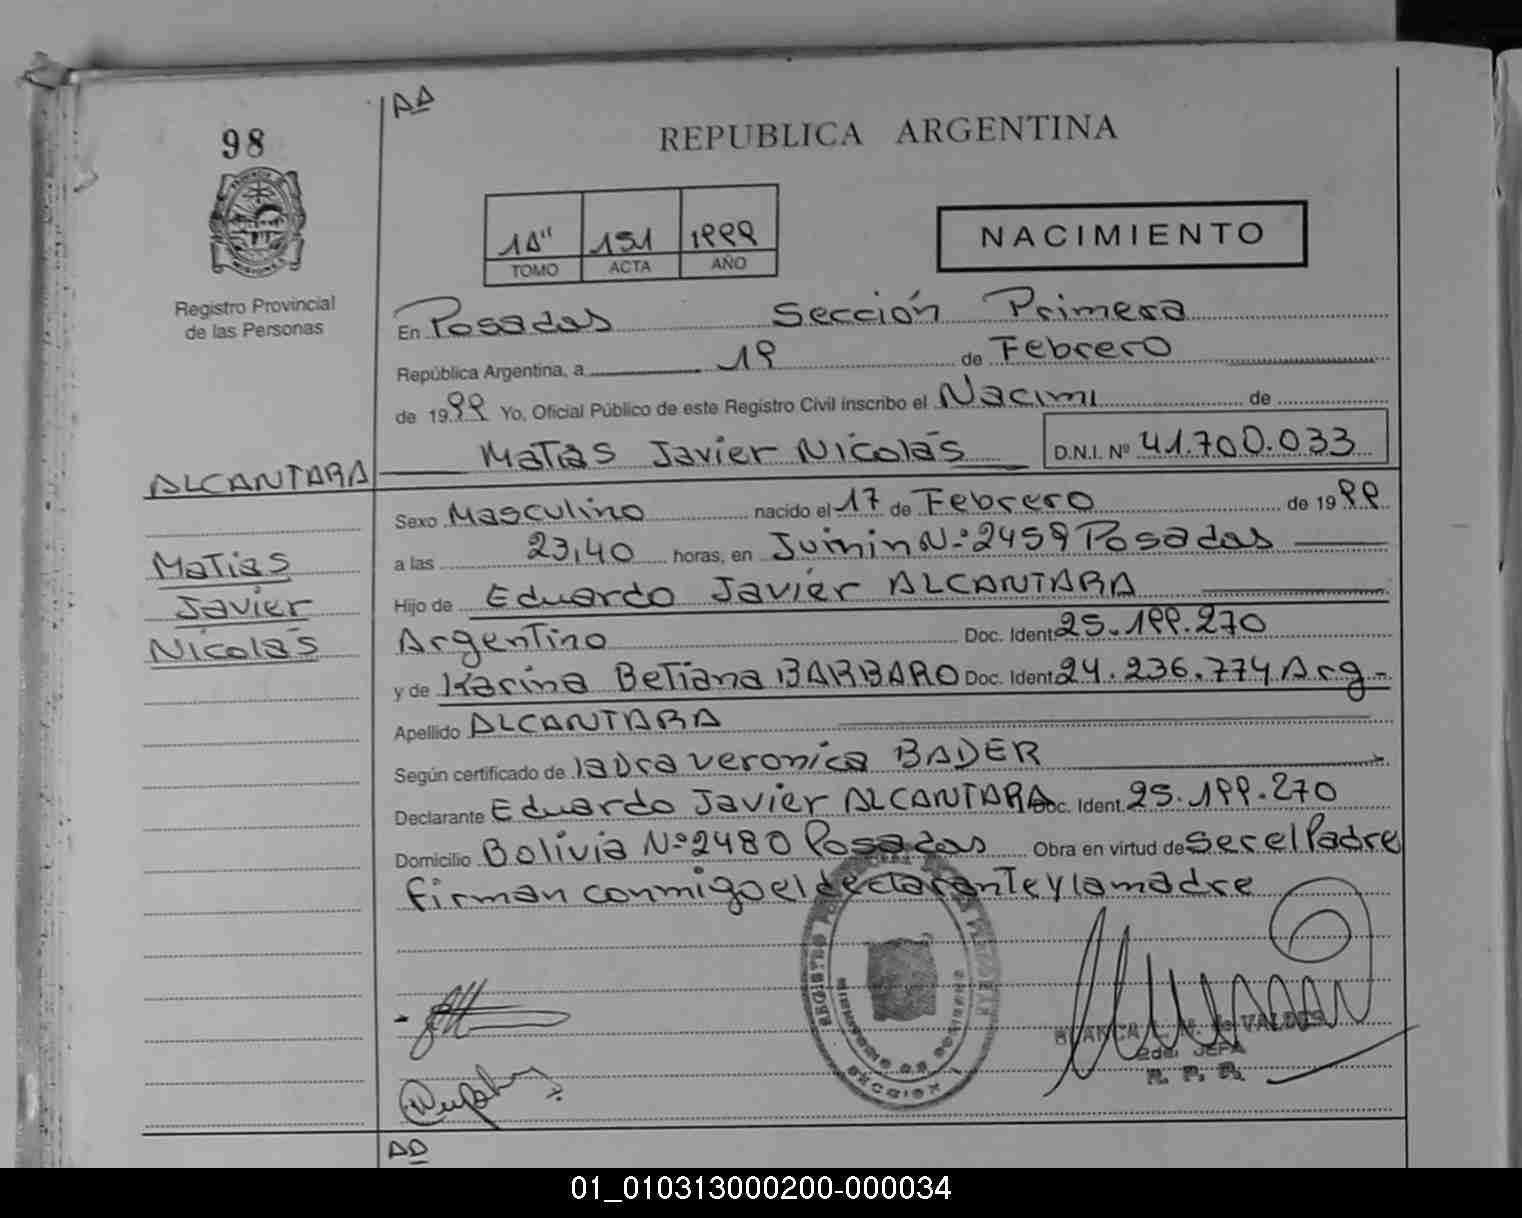 AA
98
REPUBLICA ARGENTINA
1A" 151 1999
TOMO ACTA AÑO
NACIMIENTO
Registro Provincial
de las Personas
En Posadas Sección Primera
República Argentina, a 19 de Febrero
de 1999 Yo, Oficial Público de este Registro Civil inscribo el Nacimi de
ALCANTARA Matías Javier Nicolás D.N.I. Nº 41.700.033
Sexo Masculino nacido el 17 de Febrero de 1999
Matias
Javier
Nicolás
a las 23,40 horas, en Junin Nº 2459 Posadas
Hijo de Eduardo Javier ALCANTARA
Argentino Doc. Ident. 25.199.270
y de Karina Betiana BARBARO Doc. Ident. 24.236.774 Arg.-
Apellido ALCANTARA
Según certificado de la Dra Veronica BADER
Declarante Eduardo Javier ALCANTARA Doc. Ident. 25.199.270
Domicilio Bolivia Nº 2480 Posadas Obra en virtud de ser el Padre
firman conmigo el declarante y la madre
BLANCA L. M. de VALDES
2da. JEFA
R. P. P.
AD
01_010313000200-000034